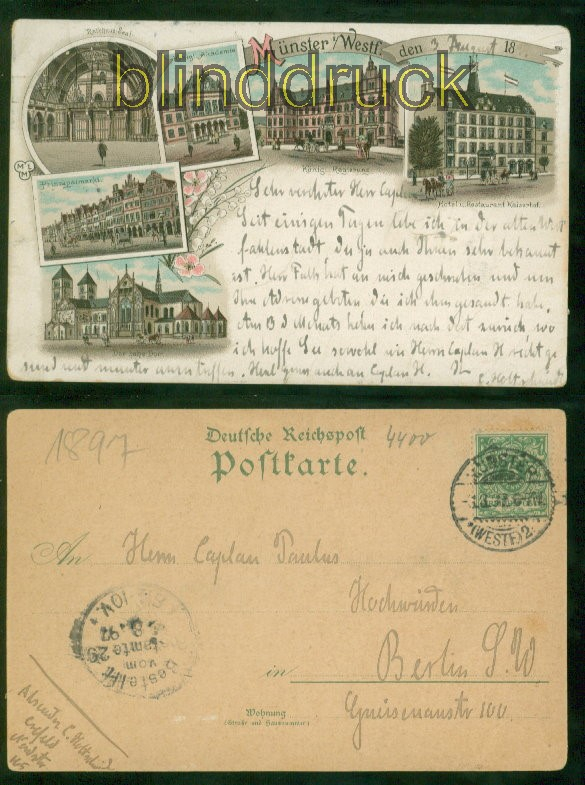 blinddruck
Münster i/Westf. den 3 August 18
Rathhaus-Saal
Kgl. Akademie
Königl. Regierung
Hotel u. Restaurant Kaiserhof.
Prinzipalmarkt.
Sehr verehrter Herr Caplan
Seit einigen Tagen lebe ich in der alten West
fahlenstadt, die ja auch Ihnen sehr bekannt
ist. Herr hat an mich geschrieben und um
Ihre Adresse gebeten die ich ihm gesandt habe.
Am 13 d Monats kehre ich nach dort zurück wo
ich hoffe Sie sowohl wie Herrn Caplan H. recht ge
sund und munter anzutreffen. Herzl. auch an Caplan H.
1897
Deutsche Reichspost
4400
Postkarte.
MÜNSTER
(WESTF.) 2.
An Herrn Caplan Paulus
Hochwürden
in Berlin S.W
Gneisenaustr 100.
Wohnung
(Straße und Hausnummer)
Bestellt
vom
Postamte 29
Absender C.
Crefeld